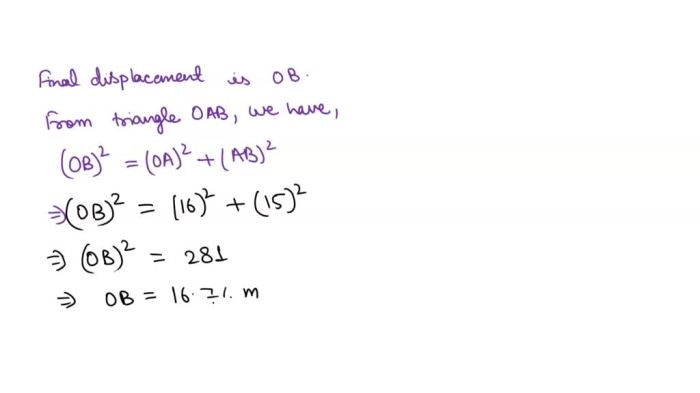 Final displacement is OB.
From triangle OAB, we have,
(OB)² = (OA)² + (AB)²
⇒ (OB)² = (16)² + (15)²
⇒ (OB)² = 281
⇒ OB = 16.71. m